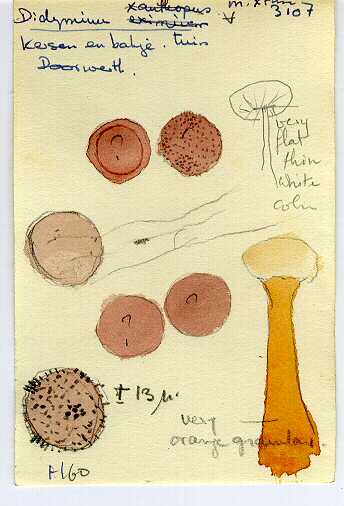 Didymium xanthopus
eximium
3107
Kersen en bakje. tuin
Doorwerth.
very
flat
thin
white
colu
± 13 µ.
very
orange granular.